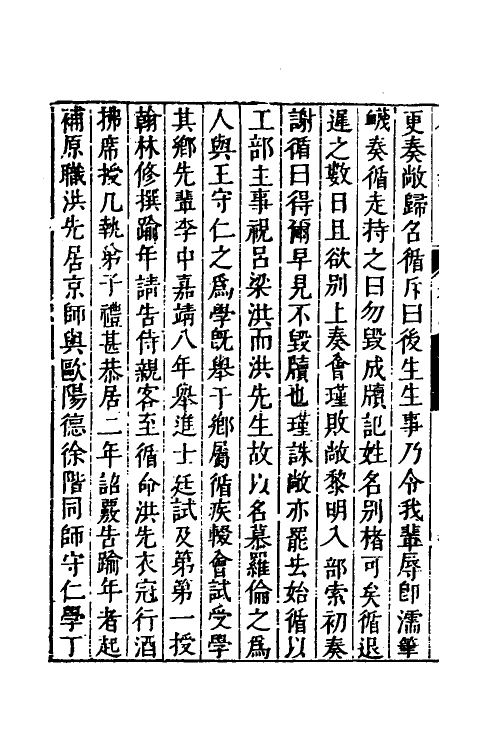 更奏敞歸名循斥曰後生生事乃令我輩辱即濡筆
巙奏循走持之曰勿毀成牘記姓名別楮可矣循退
遲之數日且欲別上奏會瑾敗敞黎明入部索初奏
謝循曰得爾早見不毀牘也瑾誅敞亦罷去始循以
工部主事視呂梁洪而洪先生故以名慕羅倫之爲
人與王守仁之爲學既舉于鄉屬循疾輟會試受學
其鄉先輩李中嘉靖八年舉進士廷試及第第一授
翰林修撰踰年請告侍親客至循命洪先衣冠行酒
拂席授几執弟子禮甚恭居二年詔覈告踰年者起
補原職洪先居京師與歐陽德徐階同師守仁學丁